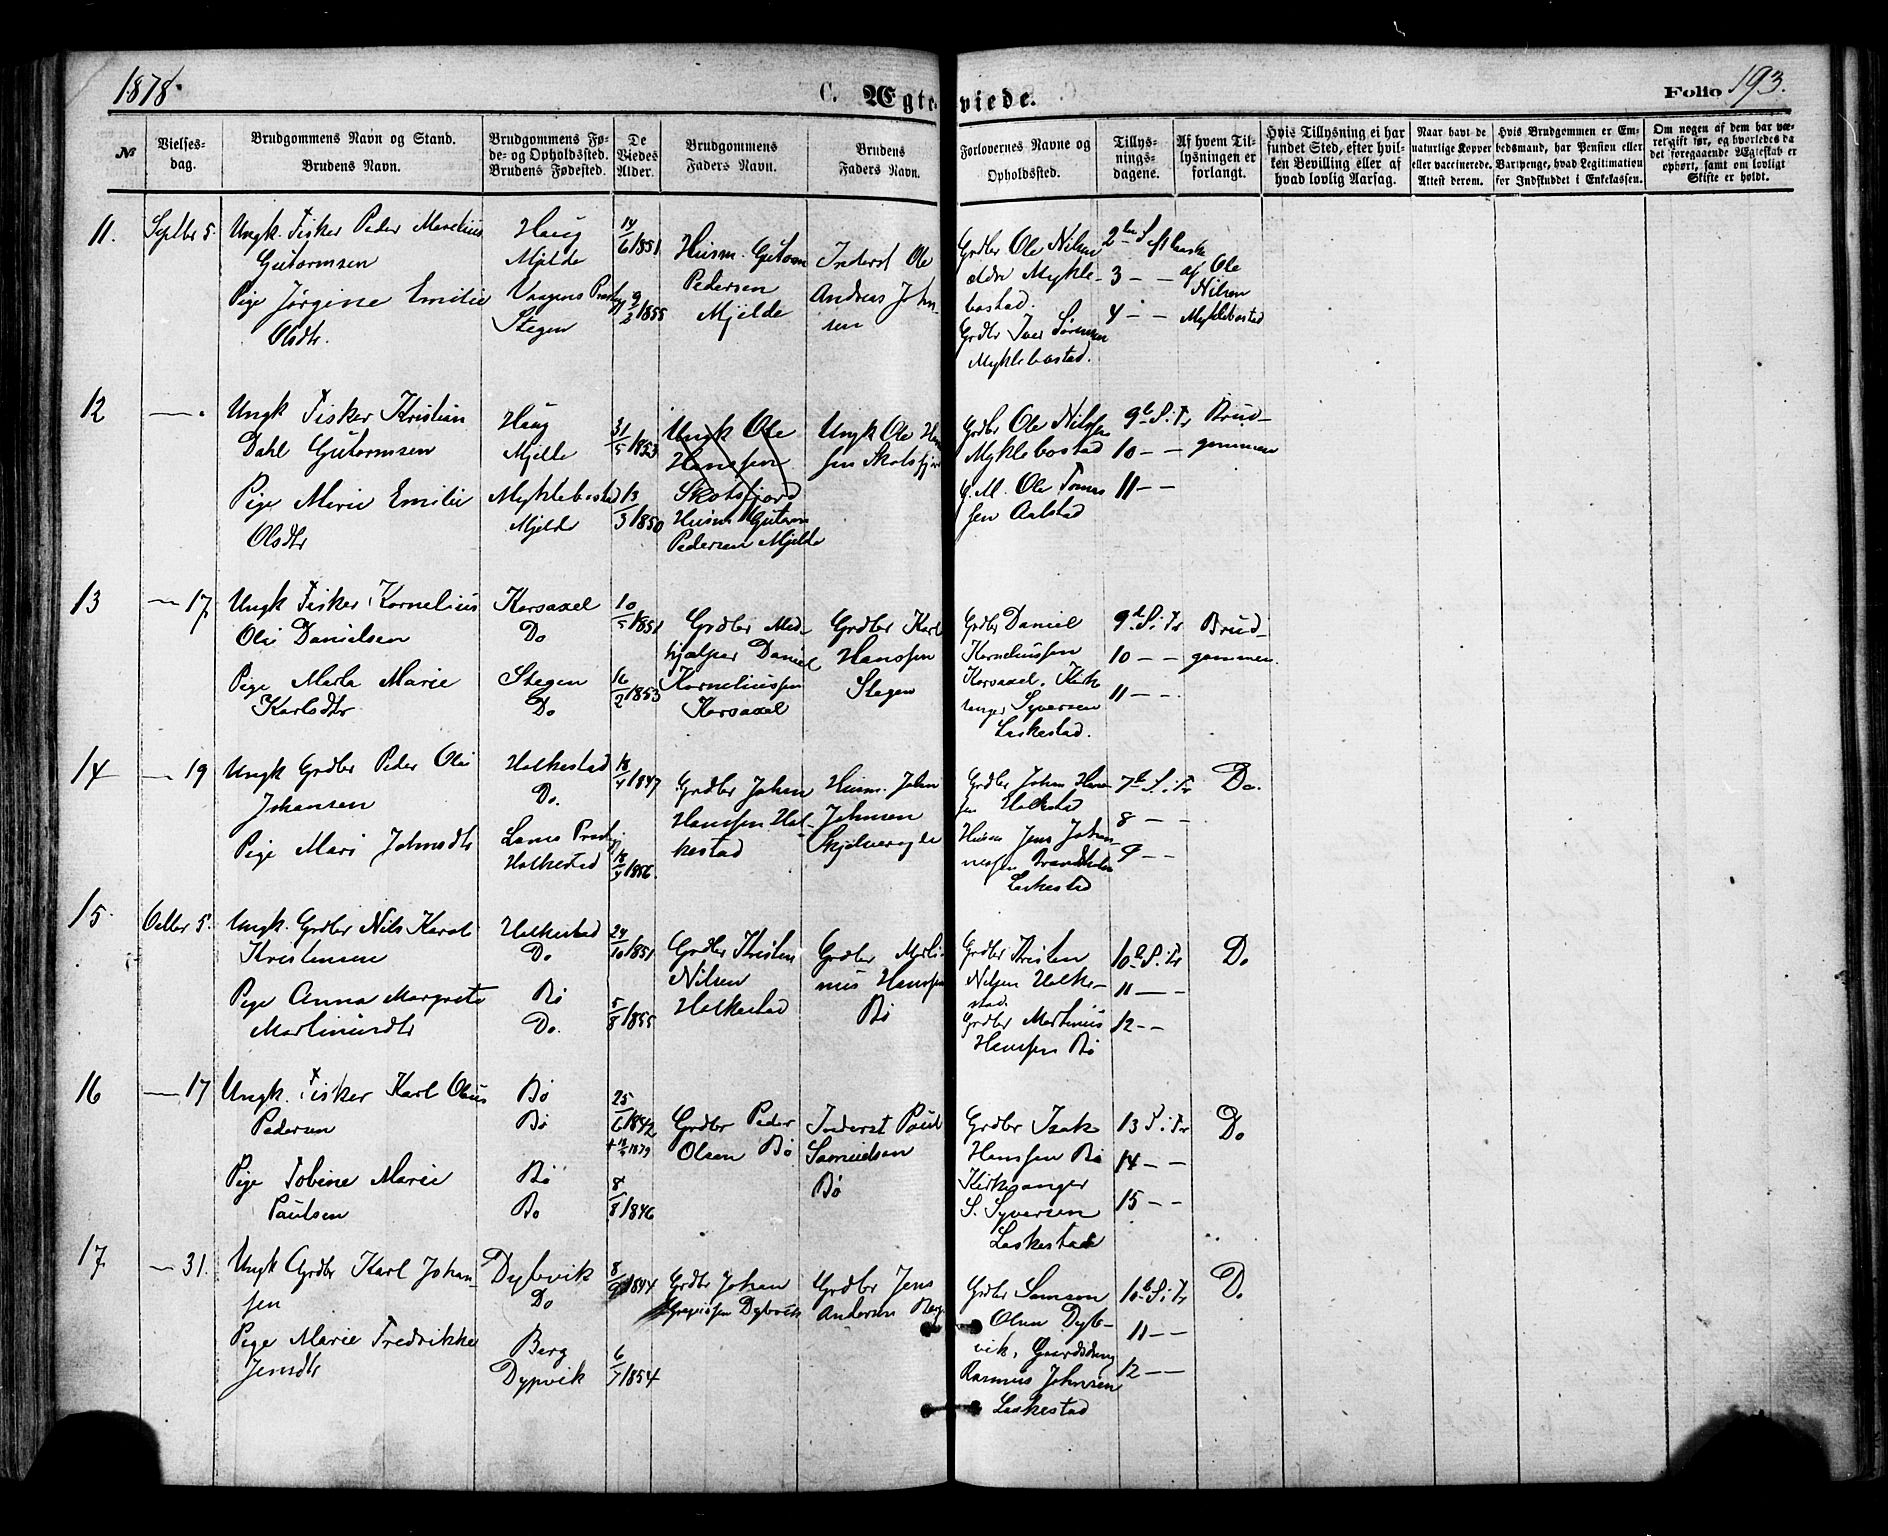 1878.
C. Ægteviede.
Folio 193.
№
Vielses-
dag.
Brudgommens Navn og Stand.
Brudens Navn.
Brudgommens Fø-
de- og Opholdssted.
Brudens Fødested.
De
Viedes
Alder.
Brudgommens
Faders Navn.
Brudens
Faders Navn.
Forlovernes Navne og
Opholdssted.
Tillys-
nings-
dagene.
Af hvem Til-
lysningen er
forlangt.
Hvis Tillysning ei har
fundet Sted, efter hvil-
ken Bevilling eller af
hvad lovlig Aarsag.
Naar havt de
naturlige Kopper
eller vaccinerede.
Attest derom.
Hvis Brudgommen er Em-
bedsmand, har Pension eller
Vartpenge, hvad Legitimation
for Indskuddet i Enkekassen.
Om nogen af dem har væ-
ret gift før, og hvorledes da
det foregaaende Ægteskab er
ophørt, samt om lovligt
Skifte er holdt.
11.
Septbr 5.
Ungk. Fisker Peder Marelius
Gutormsen
Pige Jørgine Emilie
Olsdtr.
Haug
Mjelde
Vaagens Prestgj
Stegen
14/6 1851
9/2 1855
Husm. Gutorm
Pedersen
Mjelde
Inderst Ole
Andreas John-
sen
Grdbr Ole Nilsen
ældre Mykle-
bostad.
Grdbr Iver Sørensen
Myklebostad.
3 - -
4 - -
af Ole
Nilsen
Myklebostad
12
— .
Ungk Fisker Kristian
Dahl Gutormsen
Pige Marie Emilie
Olsdtr
Haug
Mjelde
Myklebostad
Mjelde
31/5 1853
13/3 1850
Ungk Ole
Hanssen
Skotsfjord
Husm Gutorm
Pedersen Mjelde
Ungk Ole Han
sen Skotsfjord
Grdbr Ole Nilssen
Myklebostad
G. M. Ole Tomas
sen Aalstad
9de S. i Tr
10 - -
11 - -
Brud-
gommen
13
— 17.
Ungk Fisker Kornelius
Olai Danielsen
Pige Marta Marie
Karlsdtr
Korsaxel
Do
Stegen
Do
10/5 1851
16/2 1853
Grdbr Med-
hjælper Daniel
Korneliussen
Korsaxel
Grdbr Karl
Hanssen
Stegen
Grdbr Daniel
Korneliussen
Korsaxel. Kirke
sanger Syversen
Laskestad.
9de S. i Tr
10 - -
11 - -
Brud-
gommen.
14
— 19
Ungk Grdbr Peder Olai
Johansen
Pige Mari Johnsdtr
Holkestad
Do.
Lams Prestgj
Holkestad
18/4 1847
18/9 1856.
Grdbr Johan
Hanssen Hol-
kestad
Husm. John
Johnsen
Grdbr Johan Hans-
sen Holkestad
Husm Jens Johan-
nessen
Laskestad
7de S. i Tr
8 - -
9 - -
Do.
15.
Octbr 5.
Ungk. Grdbr Nils Karol
Kristensen
Pige Anna Margrete
Martinusdtr
Holkestad
Do
Bø
Do.
24/10 1851
5/8 1855
Grdbr Kristen
Nilsen
Holkestad
Grdbr Marti-
nus Hanssen
Bø
Grdbr Kristen
Nilsen Holke-
stad.
Grdbr Martinus
Hanssen Bø
10de S. i Tr
11 - -
12 - -
Do
16
— 17
Ungk. Fisker Karl Olaus
Pedersen
Pige Tobine Marie
Paulsen
Bø
Bø
Bø
Bø
25/6 1842
8/8 1846
Grdbr Peder
Olsen Bø
Inderst Paul
Samuelsen
Bø
Grdbr Isak
Hanssen Bø
Kirkesanger
S. Syversen
Laskestad
13 S. i Tr
14 - -
15 - -
Do
17
— 31.
Ungk Grdbr Karl Johan-
sen
Pige Marie Fredrikke
Jensdtr
Dybvik
Do
Berg
Dypvik
8/9 1844
6/7 1854
Grdbr Johan
Gregoiosen Dybvik
Grdbr Jens
Andersen Berg
Grdbr Samson
Olsen Dyb-
vik, Gaardsdreng
Rasmus Johnsen
Laskestad
10de S. i Tr
11 - -
12 - -
Do